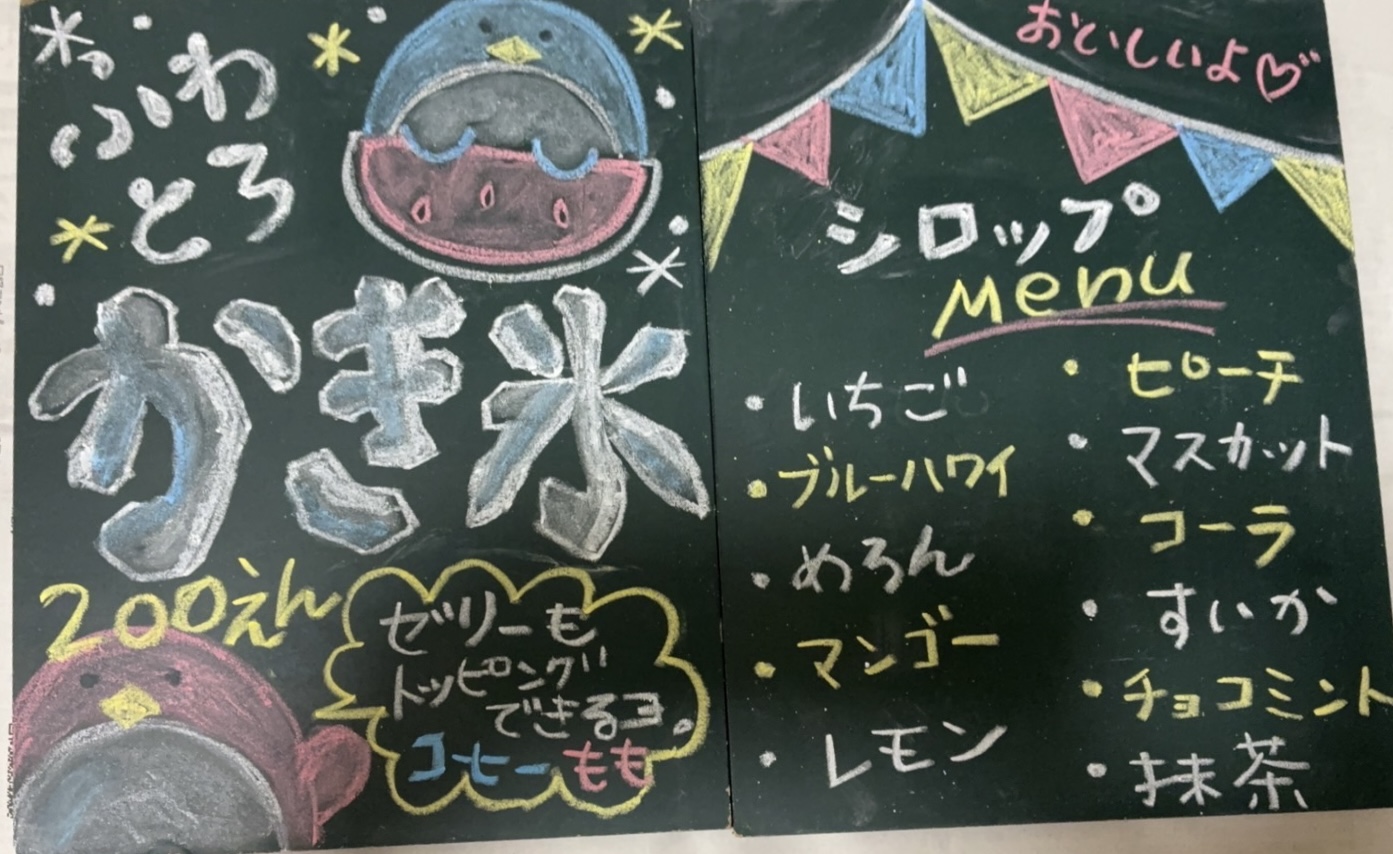 ふわっ
とろ
かき氷
200えん
ゼリーも
トッピング
できるヨ。
コーヒーもも
おいしいよ♡
シロップ
Menu
・いちご
・ブルーハワイ
・めろん
・マンゴー
・レモン
・ピーチ
・マスカット
・コーラ
・すいか
・チョコミント
・抹茶